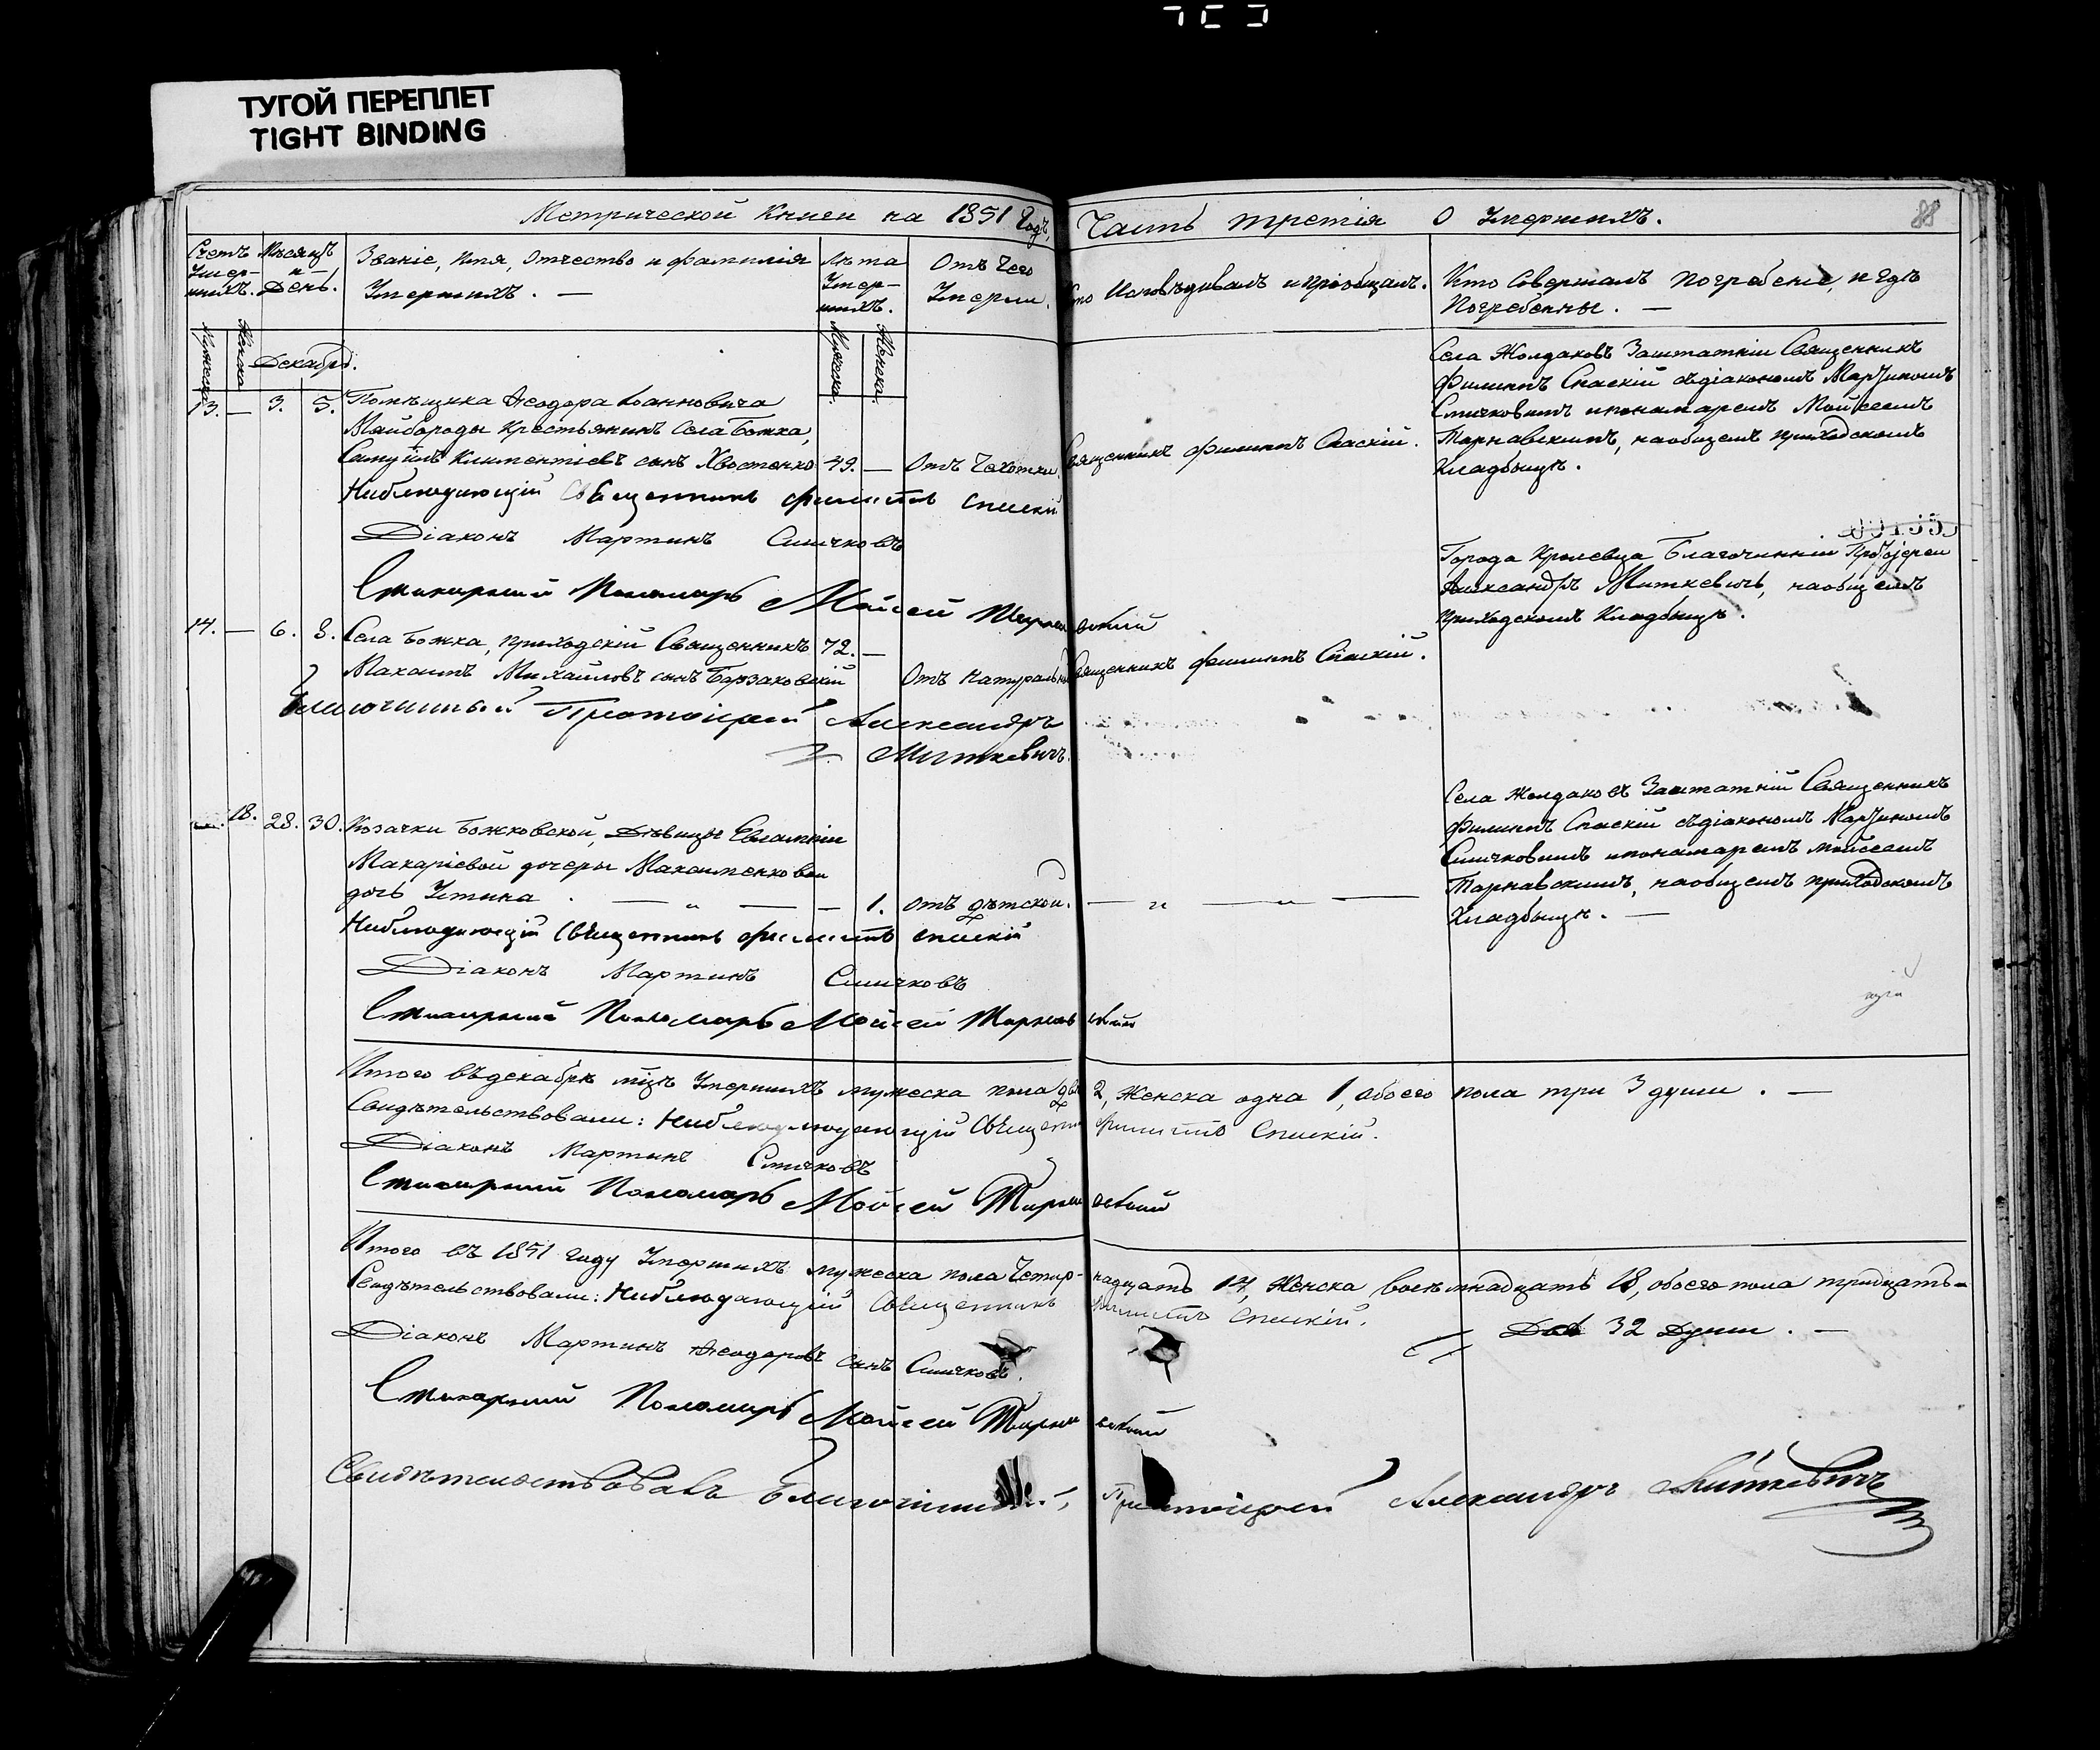 ТУГОЙ ПЕРЕПЛЕТ
TIGHT BINDING
Метрической Книги на 1851 Годъ,
Часть третія О Умершихъ.
88
Счетъ Умер-шихъ.
Мѣсяцъ и День.
Званіе, Имя, Отчество и фамилія
Умершихъ. —
Лѣта Умер-шихъ.
Отъ Чего Умерли.
Кто Исповѣдывалъ и пріобщалъ.
Кто Совершалъ Погребеніе, и гдѣ
Погребенны. —
Мужеска
Женска
Декабрь.
Мужеска.
Женска.
13. — 3. 5. Помѣщика Ѳеодора Іоанновича
Майбороды Крестьянинъ Села Божка,
Самуилъ Климентіевъ сынъ Хвостенко 49. — Отъ Чахотки
Священникъ Филиппъ Спаскій.
Села Жолдаковъ Заштатній Священникъ
Филиппъ Спаскій съдіакономъ Мартиномъ
Смичковимъ ипонамаремъ Мойсеемъ
Тарнавскимъ, наобщемъ приходскомъ
Кладбыщѣ.
Наблюдающій Священникъ Филиппъ Спаскій
Діаконъ Мартинъ Смичковъ
Стихарный Пономарь Мойсей Тарнавскій
14. — 6. 8. Села Божка, приходскій Священникъ 72. —
Михайловъ сынъ Борзаковскій Отъ Натуральной
Священникъ Филиппъ Спаскій.
Города Кролевца Благочинній Протоіерей
Александръ Миткевичъ, наобщемъ
приходскомъ Кладбыщѣ.
Благочинный Протоіерей Александръ
Миткевичъ.
— 18. 28. 30. Козачки Божковской, Дѣвицы Евлампіи
Макаріевой дочеры Максименковой
дочь Устина — „ — — 1. отъ дѣтской.
— „ — „ —
Села Жолдаковъ Заштатній Священникъ
Филиппъ Спаскій съдіакономъ Мартиномъ
Смичковимъ ипонамаремъ Мойсеемъ
Тарнавскимъ, наобщемъ приходскомъ
Кладбыщѣ. —
Наблюдающій Священникъ Филиппъ Спаскій
Діаконъ Мартинъ Смичковъ
Стихарный Пономарь Мойсей Тарнавскій
Итого въдекабрѣ мцѣ Умершихъ мужеска пола два 2, Женска одна 1, обоего пола три 3 души. —
Свидѣтельствовали: Наблюдающій Священникъ Филиппъ Спаскій.
Діаконъ Мартинъ Смичковъ
Стихарный Пономарь Мойсей Тарнавскій
Итого въ 1851 году Умершихъ мужеска пола Четыр-надцать 14, Женска восѣмнадцать 18, обоего пола тридцать-
Двѣ 32 Души. —
Свидѣтельствовали: Наблюдающій Священникъ Филиппъ Спаскій.
Діаконъ Мартинъ Ѳеодоровъ Сынъ Смичковъ.
Стихарный Пономарь Мойсей Тарнавскій
Свидѣтельствовалъ Благочинный, Протоіерей Александръ Миткевичъ